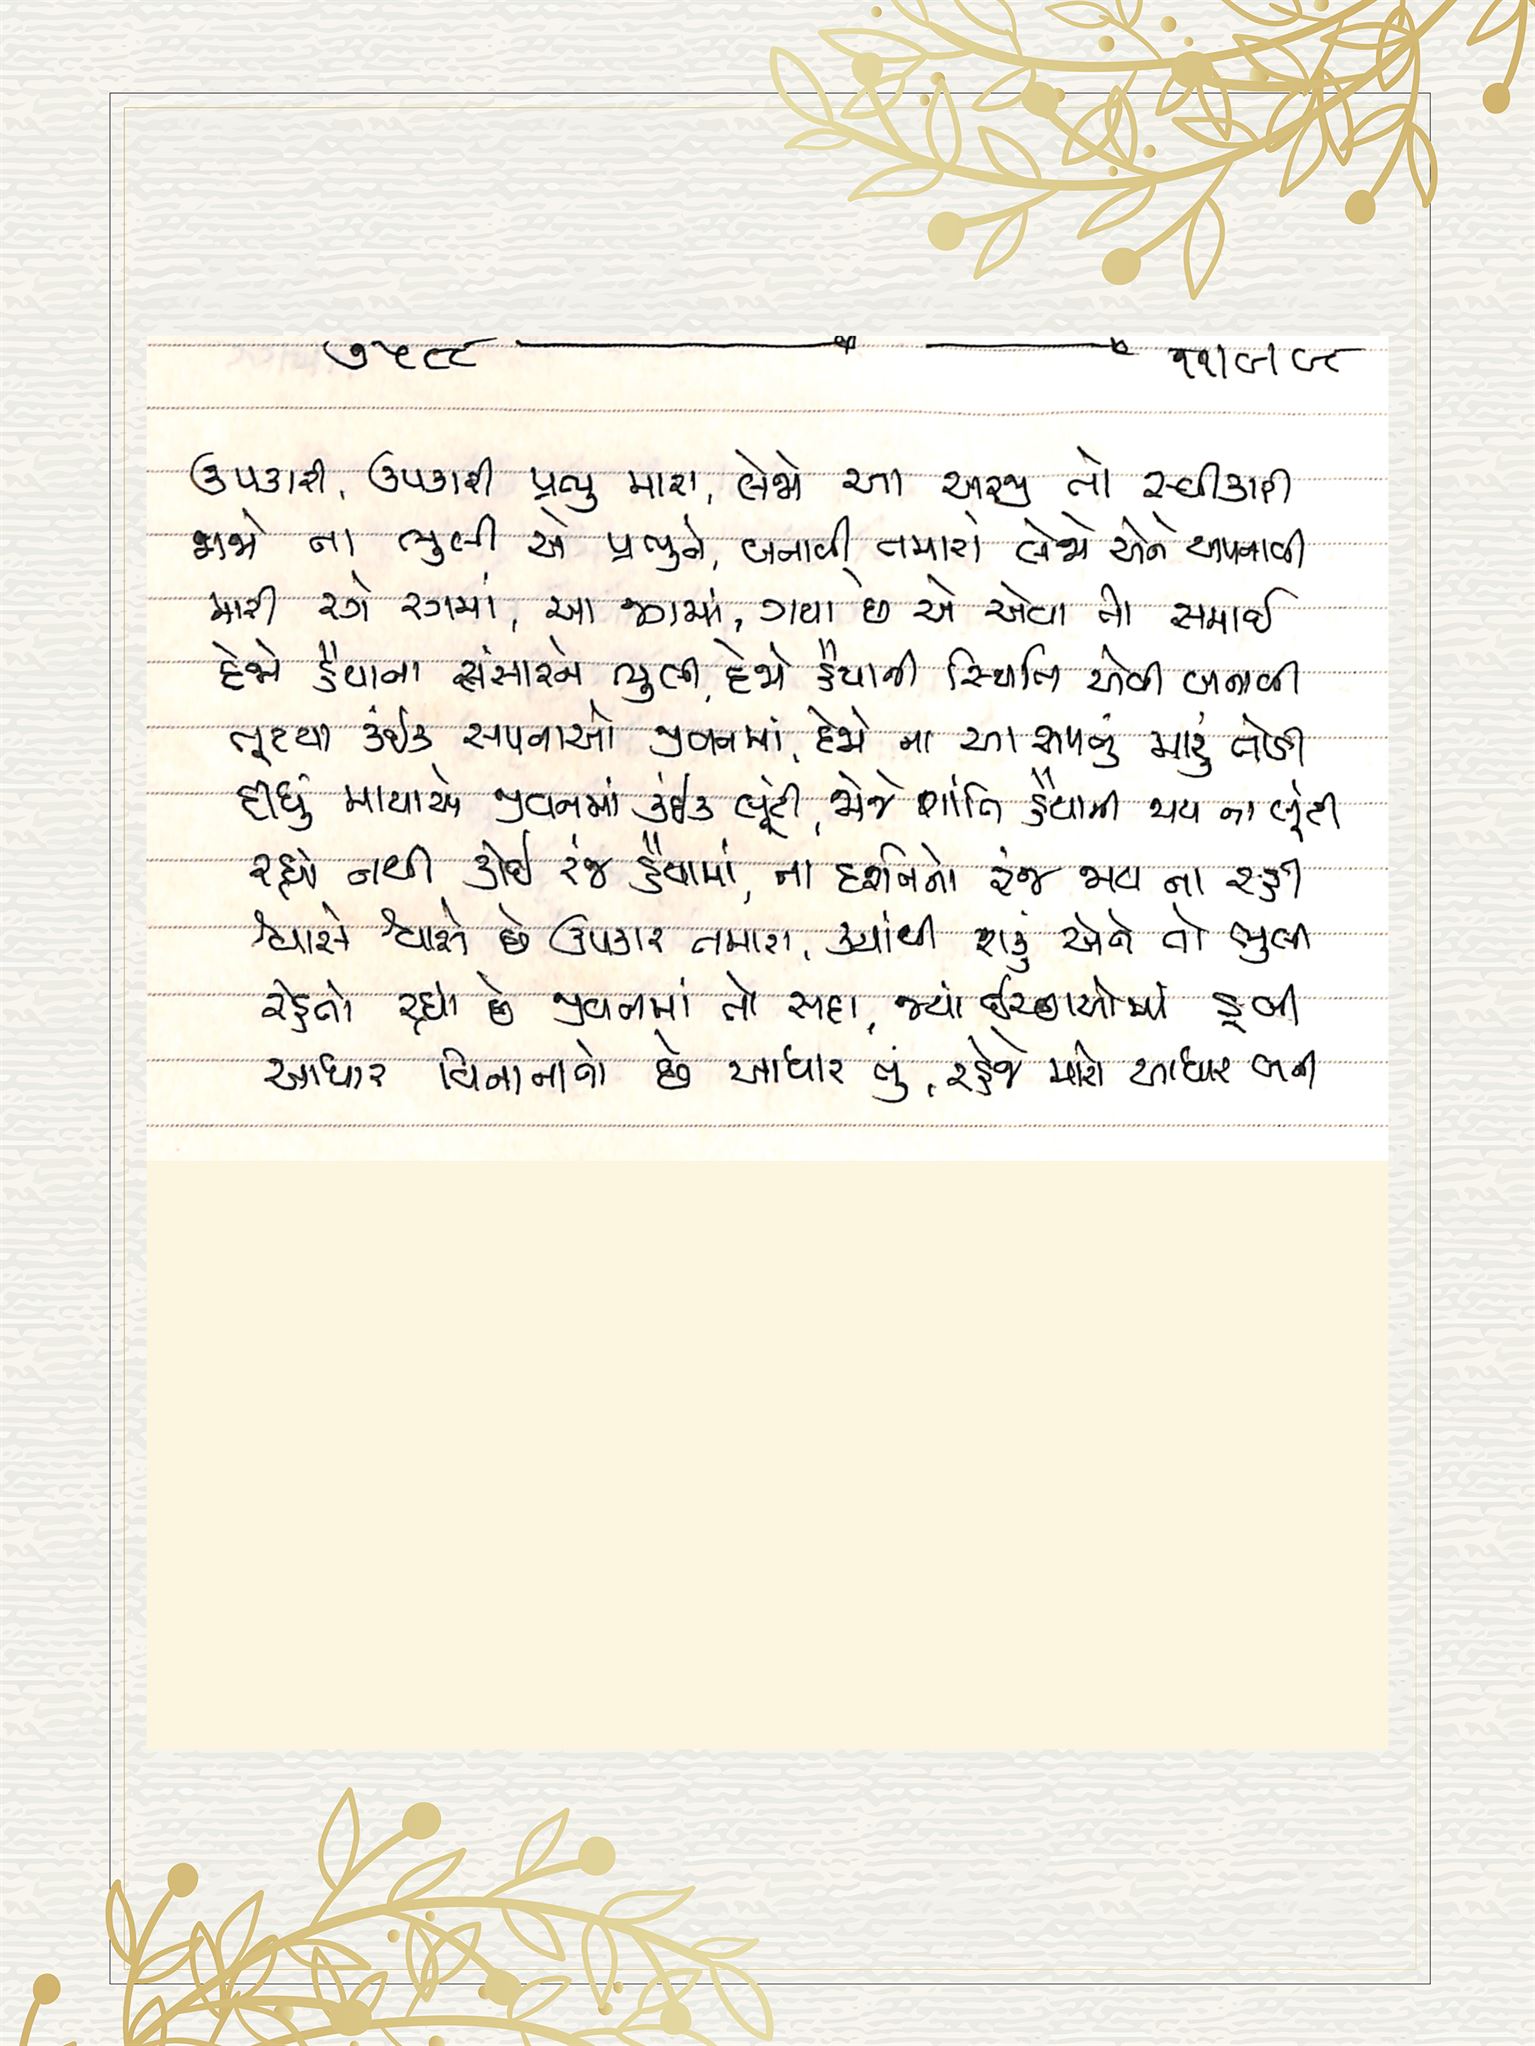 ૭૫૯૮ ૧૧।૮।૯૮
ઉપકારી, ઉપકારી પ્રભુ મારા, લેજો આ અરજી તો સ્વીકારી
જાજો ના ભુલી એ પ્રભુને, બનાવી તમારો લેજો એને અપનાવી
મારી રગે રગમાં, આ જગમાં, ગયા છો એ એવા તો સમાઈ
દેજો હૈયાના સંસારને ભુલી, દેજો હૈયાની સ્થિતિ એવી બનાવી
તૂટયા કંઈક સપનાઓ જીવનમાં, દેજો ના આ શપનું મારું તોડી
દીધું માયાએ જીવનમાં કંઈક લૂંટી, જોજે શાંતિ હૈયાની જાય ના લૂંટી
રહ્યો નથી કોઈ રંજ હૈયામાં, ના દર્શનનો રંજ જાય ના રહી
શ્વાસે શ્વાસે છે ઉપકાર તમારા, ક્યાંથી શકું એને તો ભુલી
રહેતો રહ્યો છે જીવનમાં તો સદા, જ્યાં ઈચ્છાઓમાં ડૂબી
આધાર વિનાનાનો છે આધાર તું, રહેજે મારો આધાર બની